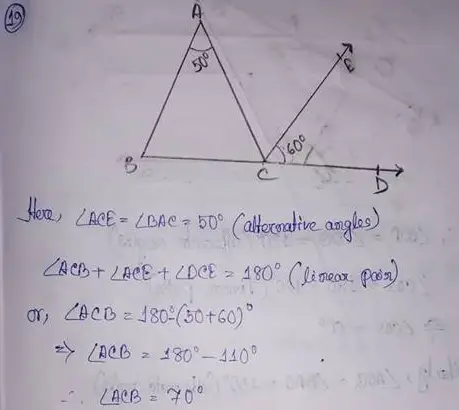 19
A
50°
E
60°
B
C
D
Here, ∠ACE = ∠BAC = 50° (alternative angles)
∠ACB + ∠ACE + ∠DCE = 180° (linear pair)
or, ∠ACB = 180°-(50+60)°
⇒ ∠ACB = 180° - 110°
∴ ∠ACB = 70°